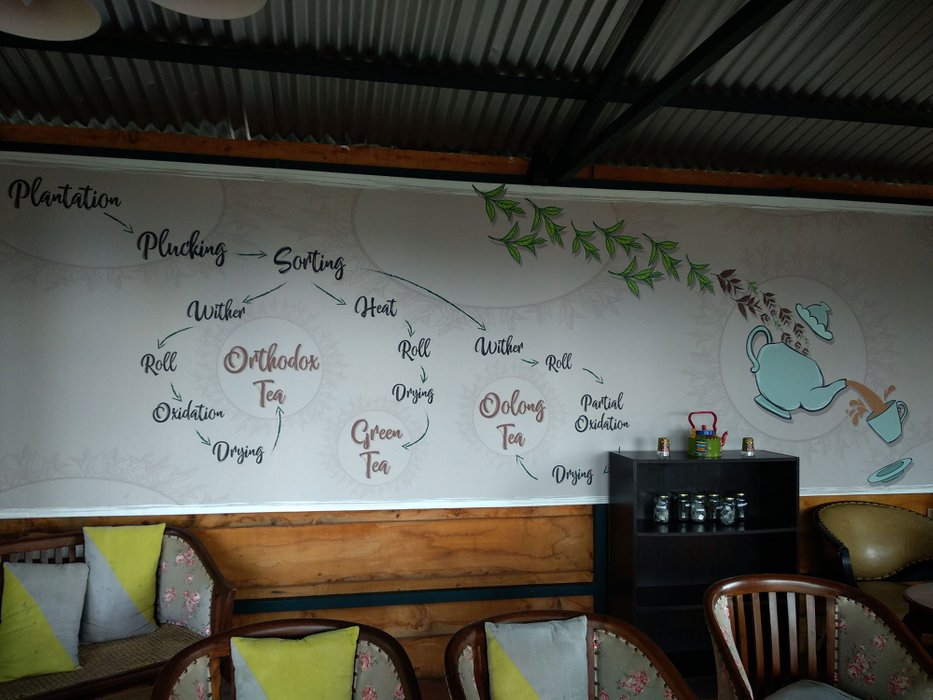 Plantation
Plucking
Sorting
Wither
Roll
Oxidation
Drying
Orthodox
Tea
Heat
Roll
Drying
Green
Tea
Wither
Roll
Partial
Oxidation
Drying
Oolong
Tea